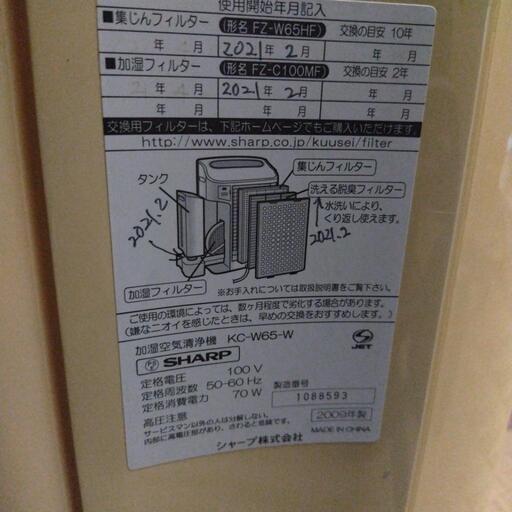 使用開始年月記入
■集じんフィルター (形名 FZ-W65HF) 交換の目安 10年
年 月 2021年 2月 年 月
■加湿フィルター (形名 FZ-C100MF) 交換の目安 2年
年 月 2021年 2月 年 月
年 月 年 月 年 月
交換用フィルターは、下記ホームページでもご購入いただけます。
http://www.sharp.co.jp/kuusei/filter
集じんフィルター
タンク
洗える脱臭フィルター
水洗いにより、
くり返し使えます。
2021.2
2021.2
加湿フィルター
※お手入れについては取扱説明書をご覧下さい。
ご使用の環境によっては、数ヶ月程度で劣化する場合があります。
(嫌なニオイを感じたときは、早めの交換をおすすめします。)
加湿空気清浄機 KC-W65-W
SHARP
JET
定格電圧 100 V
定格周波数 50-60 Hz
定格消費電力 70 W
製造番号
1088593
高圧注意
2009年製
サービスマン以外の人は分解しない。
内部に高電圧部があり、さわると危険です。
MADE IN CHINA
シャープ株式会社